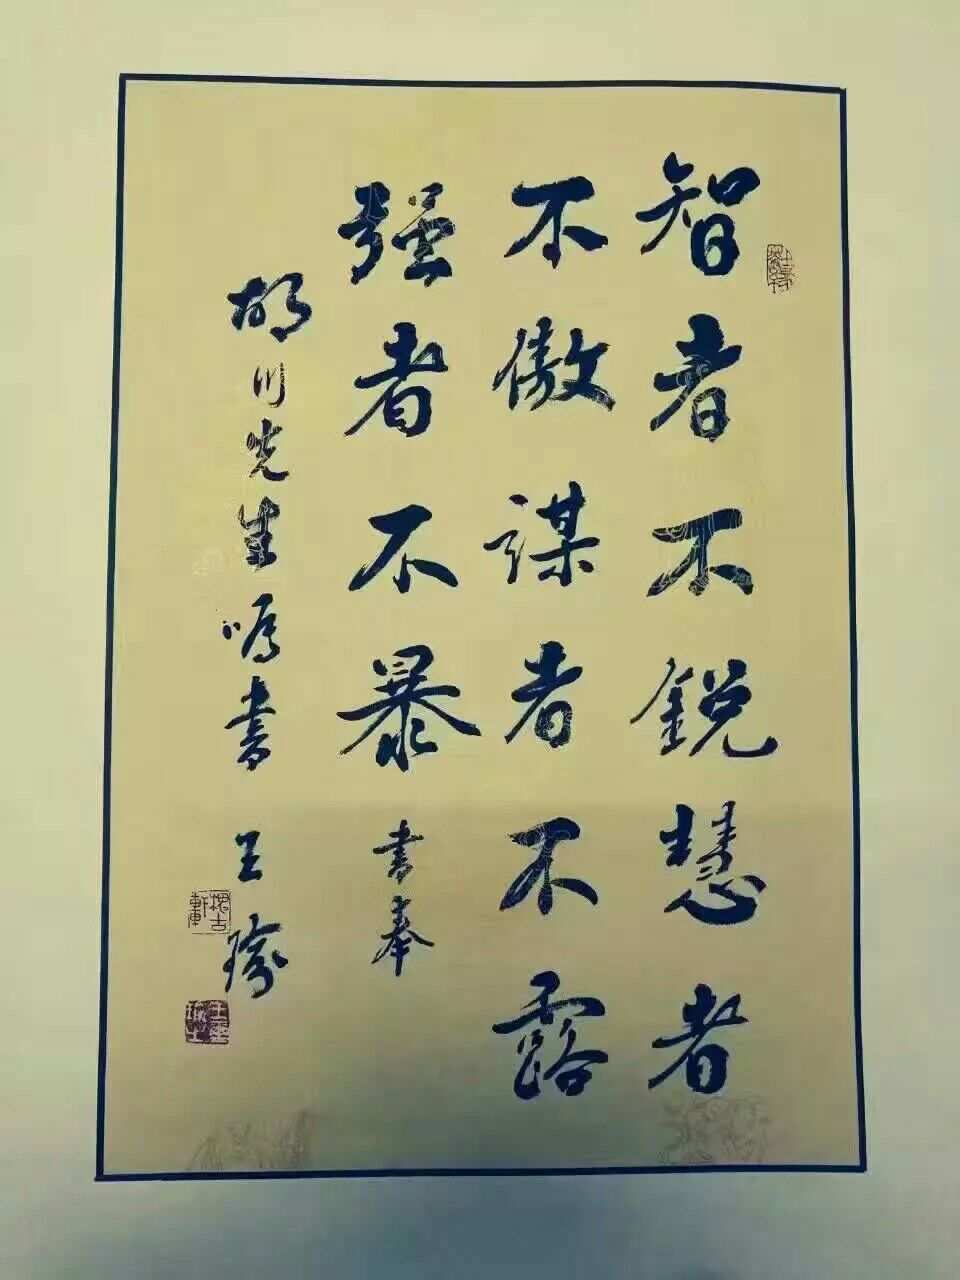 智者不銳慧者
不傲谋者不露
强者不暴 書奉
胡川先生嘱書 王瑜